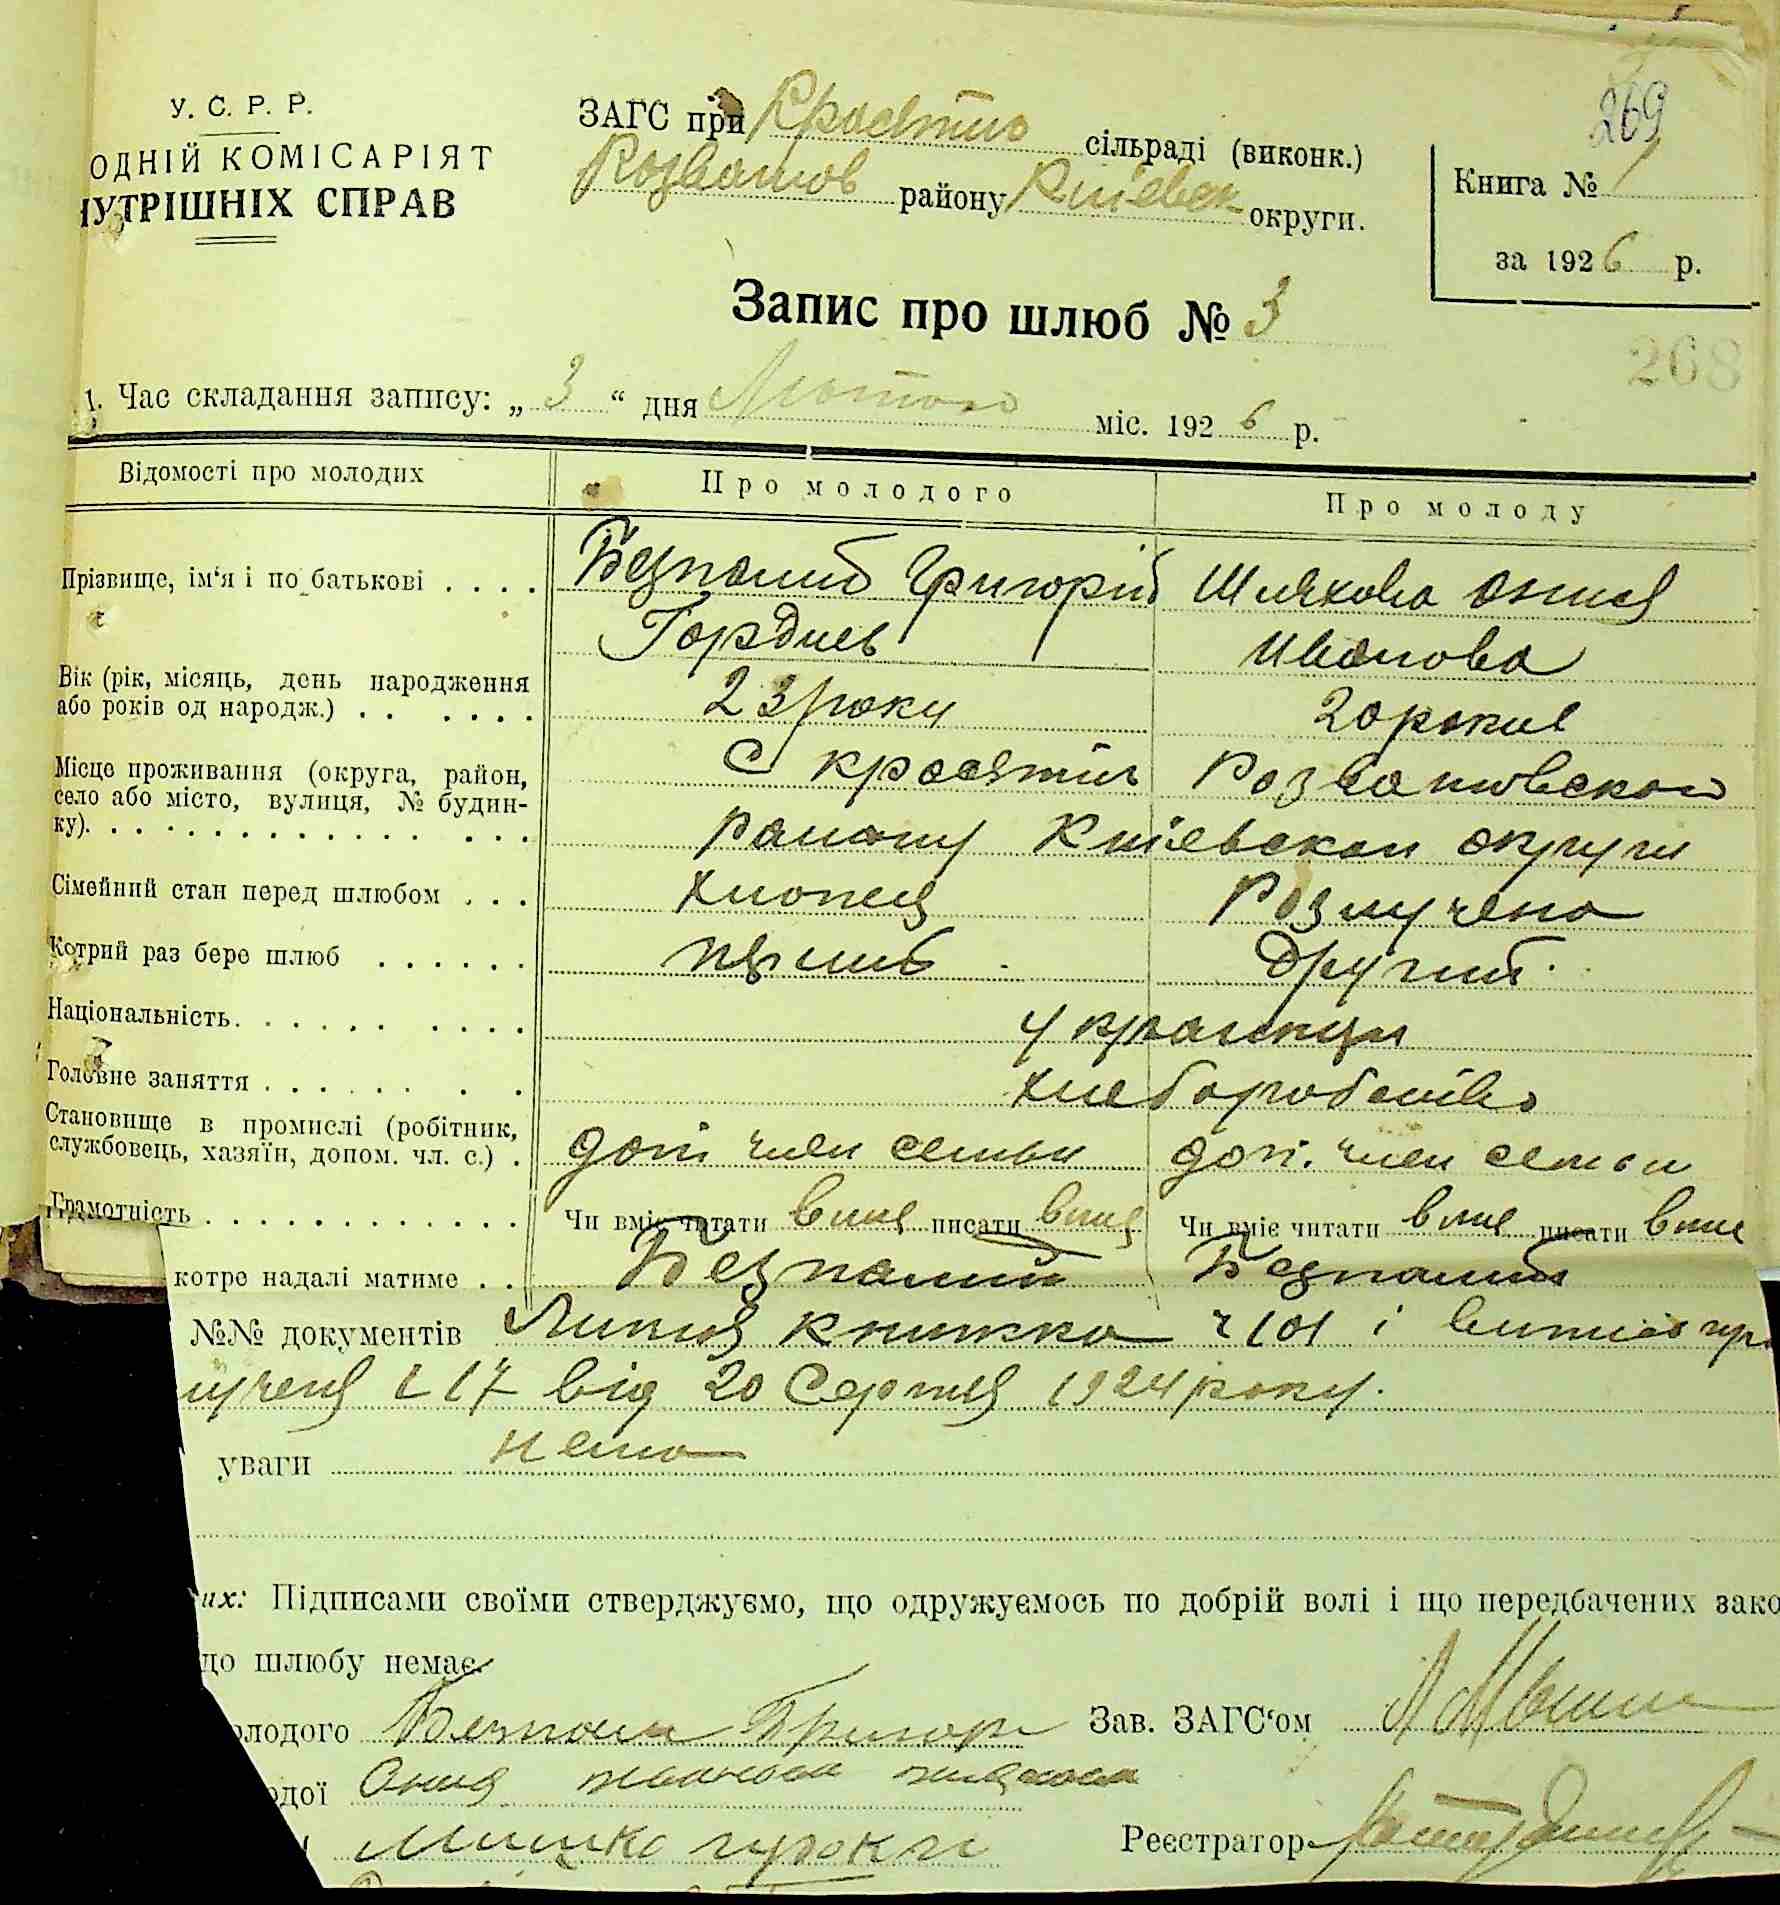 269
У. С. Р. Р.
ОДНІЙ КОМІСАРІЯТ
НУТРІШНІХ СПРАВ
ЗАГС при Красятич сільраді (виконк.)
Розважов району Київськ округи.
Книга № 1
за 1926 р.
Запис про шлюб № 3
268
1. Час складання запису: „ 3 “ дня Лютого міс. 1926 р.
Відомості про молодих Про молодого Про молоду
Прізвище, ім‘я і по батькові . . . . Безпалий Григорій Шляхова Онися
Гордиев Иванова
Вік (рік, місяць, день народження
або років од народж.) . . . . . . 23 роки 20 років
Місце проживання (округа, район,
село або місто, вулиця, № будин-
ку). С Красятичі Розважовского
району Київвскои округи
Сімейний стан перед шлюбом . . . хлопец Розлучена
Котрий раз бере шлюб . . . . . . перший Другий.
Національність. украинци
Головне заняття хлеборобство
Становище в промислі (робітник,
службовець, хазяїн, допом. чл. с.) . доп член семьи доп. член семьи
Грамотність Чи вміє читати вмие писати вмие Чи вміє читати вмие писати вмие
котре надалі матиме . . Безпалий Безпалий
№№ документів книжка ч 101 і витяг про
лученя ч 17 від 20 Серпня 1924 року.
уваги нема
их: Підписами своїми стверджуємо, що одружуємось по добрій волі і що передбачених зако
до шлюбу немає.
олодого Безпали Григор Зав. ЗАГС‘ом
одої Онися
Реєстратор